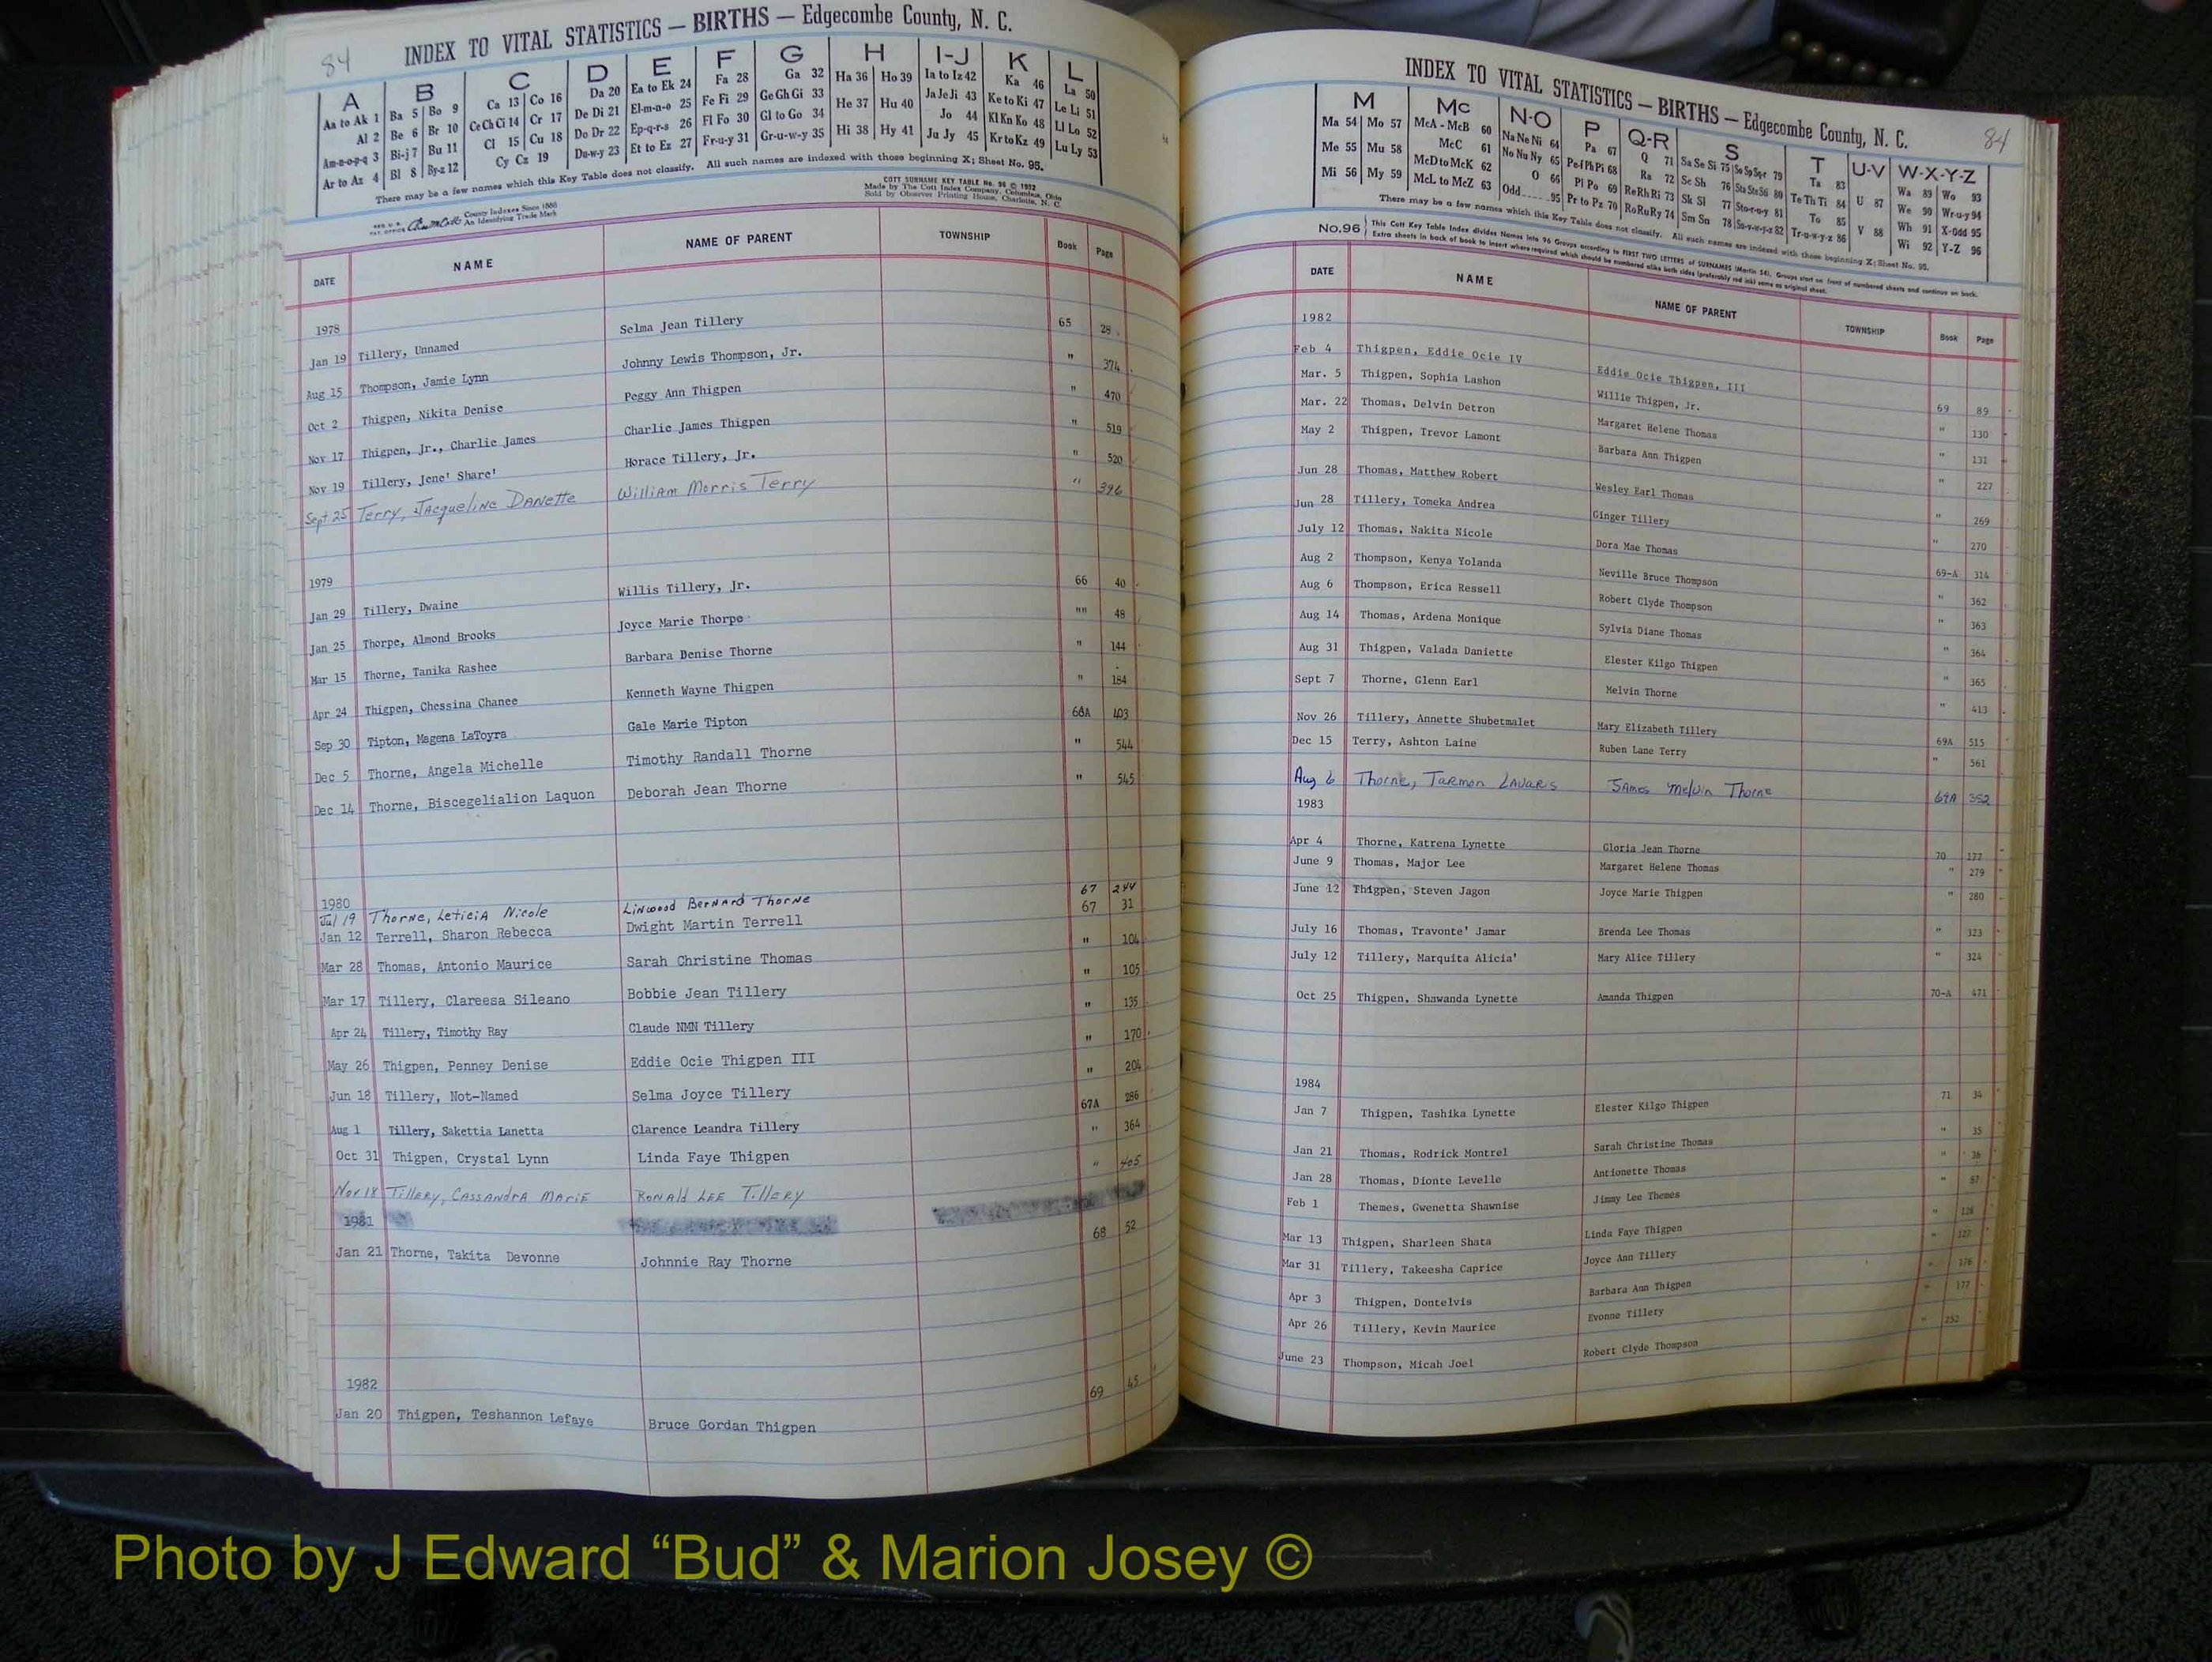 84
INDEX TO VITAL STATISTICS — BIRTHS — Edgecombe County, N. C.
A B C D E F G H I-J K L
Aa to Ak 1 Ba 5 Bo 9 Ca 13 Co 16 Da 20 Ea to Ek 24 Fa 28 Ga 32 Ha 36 Ho 39 Ia to Iz 42 Ka 46 La 50
Al 2 Be 6 Br 10 Ce Ch Ci 14 Cr 17 De Di 21 El-m-n-o 25 Fe Fi 29 Ge Gh Gi 33 He 37 Hu 40 Ja Je Ji 43 Ke to Ki 47 Le Li 51
Am-n-o-p-q 3 Bi-j 7 Bu 11 Cl 15 Cu 18 Do Dr 22 Ep-q-r-s 26 Fl Fo 30 Gl to Go 34 Hi 38 Hy 41 Jo 44 Kl Kn Ko 48 Ll Lo 52
Ar to Az 4 Bl 8 By-z 12 Cy Cz 19 Du-w-y 23 Et to Ez 27 Fr-u-y 31 Gr-u-w-y 35 Ju Jy 45 Kr to Kz 49 Lu Ly 53
There may be a few names which this Key Table does not classify. All such names are indexed with those beginning X; Sheet No. 95.
County Indexes Since 1888
An Identifying Trade Mark
COTT SURNAME KEY TABLE No. 96 © 1952
Made by The Cott Index Company, Columbus, Ohio
Sold by Observer Printing House, Charlotte, N. C.
DATE NAME NAME OF PARENT TOWNSHIP Book Page
1978
Jan 19 Tillery, Unnamed Selma Jean Tillery 65 28
Aug 15 Thompson, Jamie Lynn Johnny Lewis Thompson, Jr. " 374
Oct 2 Thigpen, Nikita Denise Peggy Ann Thigpen " 470
Nov 17 Thigpen, Jr., Charlie James Charlie James Thigpen " 519
Nov 19 Tillery, Jene' Share' Horace Tillery, Jr. " 520
Sept 25 Terry, Jacqueline Danette William Morris Terry " 396
1979
Jan 29 Tillery, Dwaine Willis Tillery, Jr. 66 40
Jan 25 Thorpe, Almond Brooks Joyce Marie Thorpe "" 48
Mar 15 Thorne, Tanika Rashee Barbara Denise Thorne " 144
Apr 24 Thigpen, Chessina Chanee Kenneth Wayne Thigpen " 184
Sep 30 Tipton, Magena LaToyra Gale Marie Tipton 66A 403
Dec 5 Thorne, Angela Michelle Timothy Randall Thorne " 544
Dec 14 Thorne, Biscegelialion Laquon Deborah Jean Thorne " 545
1980
Jul 19 Thorne, Leticia Nicole Linwood Bernard Thorne 67 244
Jan 12 Terrell, Sharon Rebecca Dwight Martin Terrell 67 31
Mar 28 Thomas, Antonio Maurice Sarah Christine Thomas " 104
Mar 17 Tillery, Clareesa Sileano Bobbie Jean Tillery " 105
Apr 24 Tillery, Timothy Ray Claude NMN Tillery " 135
May 26 Thigpen, Penney Denise Eddie Ocie Thigpen III " 170
Jun 18 Tillery, Not-Named Selma Joyce Tillery " 204
Aug 1 Tillery, Sakettia Lanetta Clarence Leandra Tillery 67A 286
Oct 31 Thigpen, Crystal Lynn Linda Faye Thigpen " 364
Nov 18 Tillery, Cassandra Marie Ronald Lee Tillery " 405
1981
Jan 21 Thorne, Takita Devonne Johnnie Ray Thorne 68 52
1982
Jan 20 Thigpen, Teshannon Lefaye Bruce Gordan Thigpen 69 45
INDEX TO VITAL STATISTICS — BIRTHS — Edgecombe County, N. C.
84
M Mc N-O P Q-R S T U-V W-X-Y-Z
Ma 54 Mo 57 McA - McB 60 Na Ne Ni 64 Pa 67 Q 71 Sa Se Si 75 So Sp Sq-r 79 Ta 83 U 87 Wa 89 Wo 93
Me 55 Mu 58 McC 61 No Nu Ny 65 Pe-f Ph Pi 68 Ra 72 Sc Sh 76 Sta Ste St-i 80 Te Th Ti 84 V 88 We 90 Wr-u-y 94
Mi 56 My 59 McD to McK 62 O 66 Pl Po 69 Re Rh Ri 73 Sk Sl 77 Sto-r-u-y 81 To 85 Wh 91 X-Odd 95
McL to McZ 63 Odd 95 Pr to Pz 70 Ro Ru Ry 74 Sm Sn 78 Su-v-w-y-z 82 Tr-u-w-y-z 86 Wi 92 Y-Z 96
There may be a few names which this Key Table does not classify. All such names are indexed with those beginning X; Sheet No. 95.
No. 96 This Cott Key Table Index divides Names into 96 Groups according to FIRST TWO LETTERS of SURNAMES (Martin 54). Groups start on front of numbered sheets and continue on back.
Extra sheets in back of book to insert where required which should be numbered alike both sides (preferably red ink) same as original sheet.
DATE NAME NAME OF PARENT TOWNSHIP Book Page
1982
Feb 4 Thigpen, Eddie Ocie IV Eddie Ocie Thigpen, III 69 89
Mar. 5 Thigpen, Sophia Lashon Willie Thigpen, Jr. " 130
Mar. 22 Thomas, Delvin Detron Margaret Helene Thomas " 131
May 2 Thigpen, Trevor Lamont Barbara Ann Thigpen " 227
Jun 28 Thomas, Matthew Robert Wesley Earl Thomas " 269
Jun 28 Tillery, Tomeka Andrea Ginger Tillery " 270
July 12 Thomas, Nakita Nicole Dora Mae Thomas 69-A 314
Aug 2 Thompson, Kenya Yolanda Neville Bruce Thompson " 362
Aug 6 Thompson, Erica Ressell Robert Clyde Thompson " 363
Aug 14 Thomas, Ardena Monique Sylvia Diane Thomas " 364
Aug 31 Thigpen, Valada Daniette Elester Kilgo Thigpen " 365
Sept 7 Thorne, Glenn Earl Melvin Thorne " 413
Nov 26 Tillery, Annette Shubetmalet Mary Elizabeth Tillery 69A 515
Dec 15 Terry, Ashton Laine Ruben Lane Terry " 561
Aug 6 Thorne, Tarmon Lavaris James Melvin Thorne 69A 352
1983
Apr 4 Thorne, Katrena Lynette Gloria Jean Thorne 70 177
June 9 Thomas, Major Lee Margaret Helene Thomas " 279
June 12 Thigpen, Steven Jagon Joyce Marie Thigpen " 280
July 16 Thomas, Travonte' Jamar Brenda Lee Thomas " 323
July 12 Tillery, Marquita Alicia' Mary Alice Tillery " 324
Oct 25 Thigpen, Shawanda Lynette Amanda Thigpen 70-A 471
1984
Jan 7 Thigpen, Tashika Lynette Elester Kilgo Thigpen 71 34
Jan 21 Thomas, Rodrick Montrel Sarah Christine Thomas " 35
Jan 28 Thomas, Dionte Levelle Antionette Thomas " 36
Feb 1 Themes, Gwenetta Shawnise Jimmy Lee Themes " 67
Mar 13 Thigpen, Sharleen Shata Linda Faye Thigpen " 126
Mar 31 Tillery, Takeesha Caprice Joyce Ann Tillery " 127
Apr 3 Thigpen, Dontelvis Barbara Ann Thigpen " 176
Apr 26 Tillery, Kevin Maurice Evonne Tillery " 177
June 23 Thompson, Micah Joel Robert Clyde Thompson " 252
Photo by J Edward “Bud” & Marion Josey ©